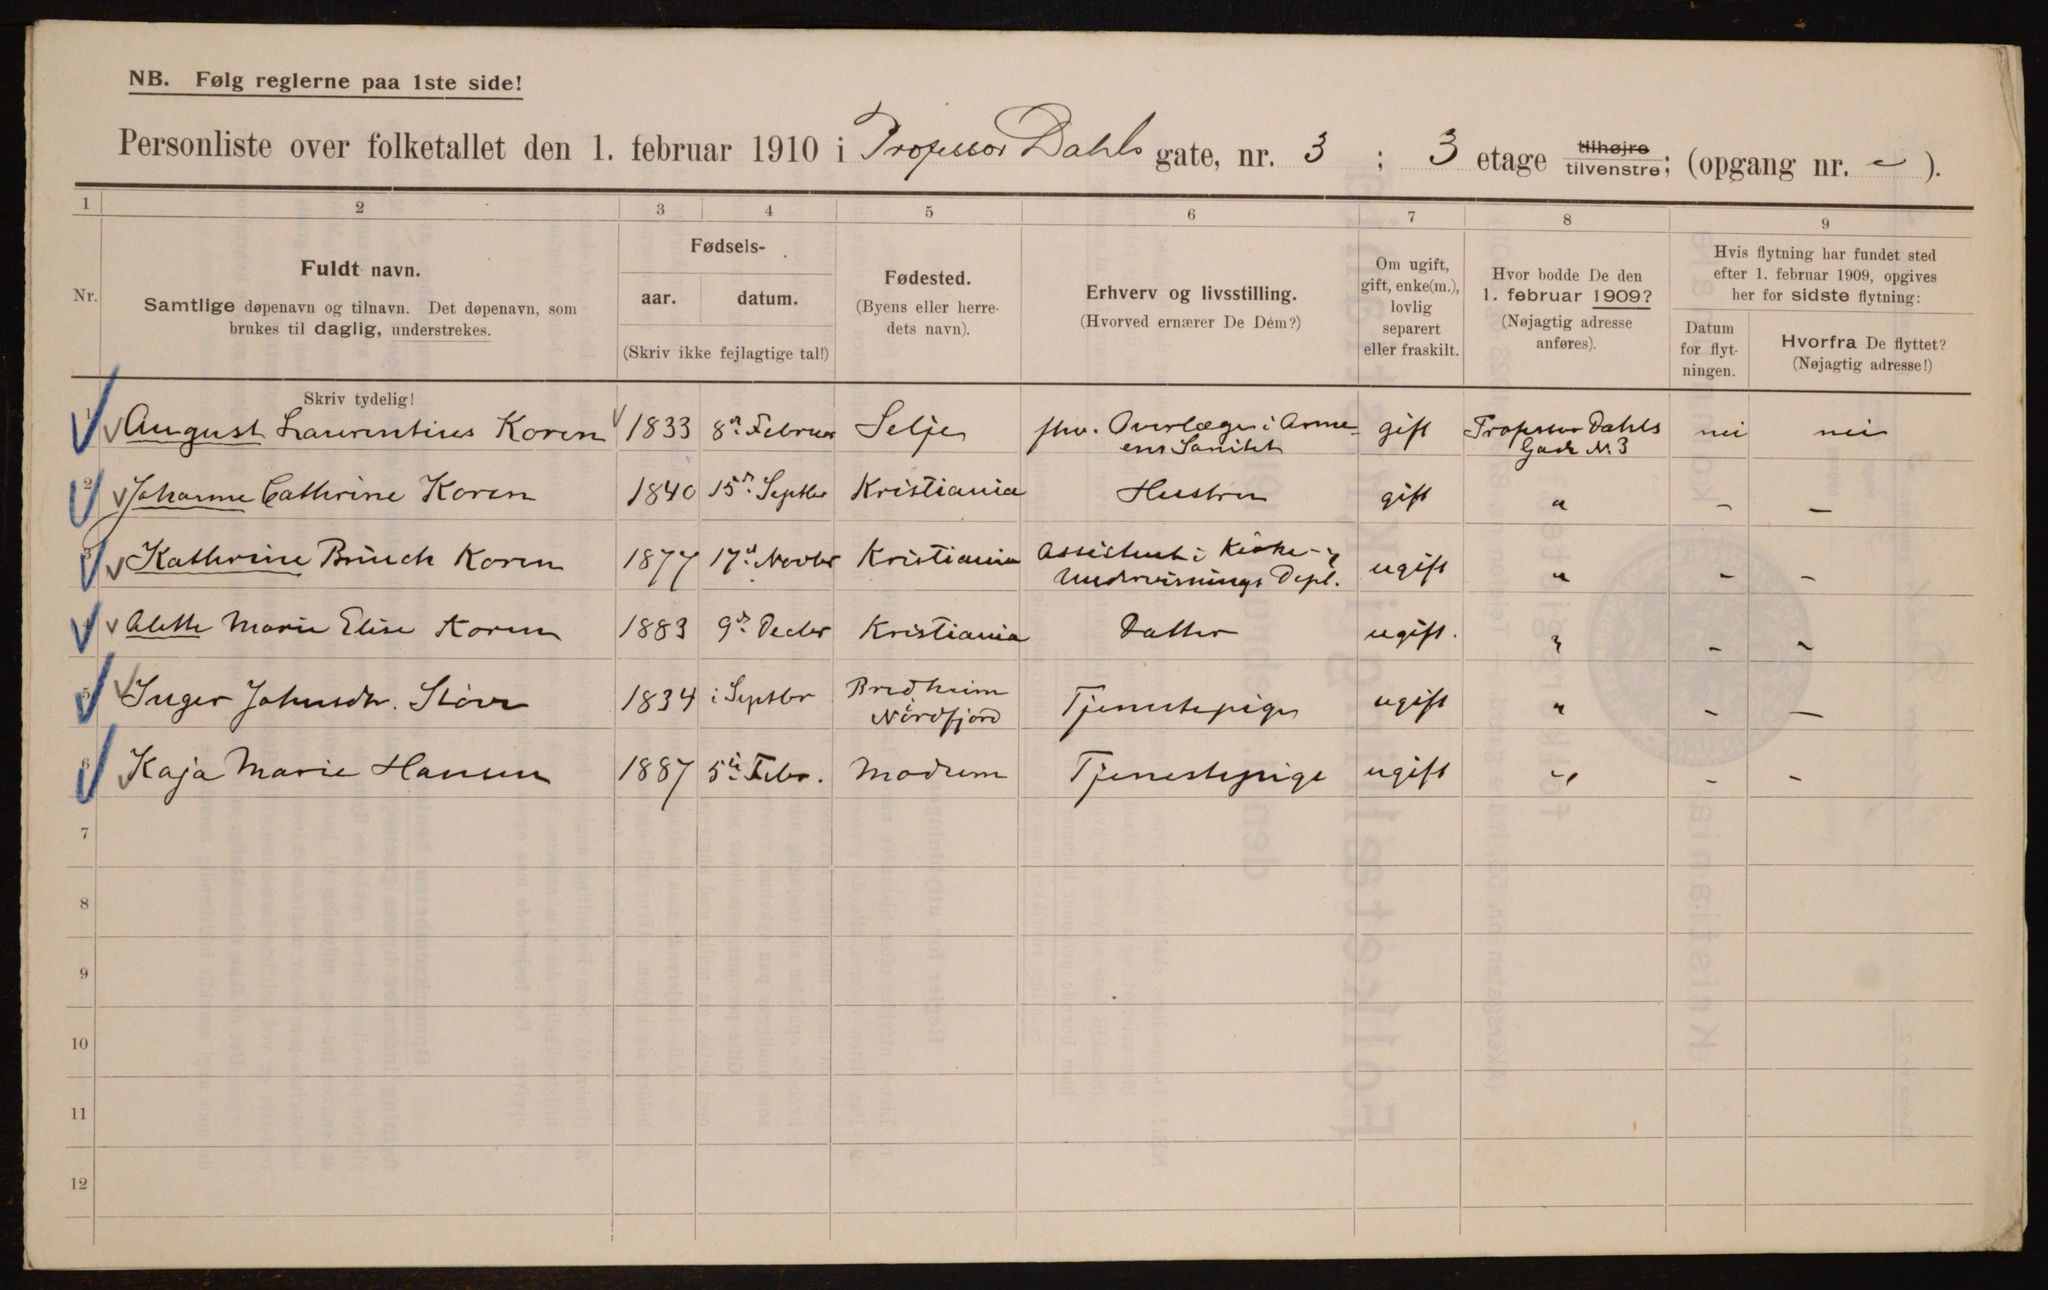 NB. Følg reglerne paa 1ste side!
Personliste over folketallet den 1. februar 1910 i Professor Dahls gate, nr. 3 ; 3 etage tilhøjre tilvenstre; (opgang nr. - ).
1 2 3 4 5 6 7 8 9
Nr.
Fuldt navn.
Samtlige døpenavn og tilnavn. Det døpenavn, som
brukes til daglig, understrekes.
Skriv tydelig!
Fødsels-
aar. datum.
(Skriv ikke fejlagtige tal!)
Fødested.
(Byens eller herre-
dets navn).
Erhverv og livsstilling.
(Hvorved ernærer De Dem?)
Om ugift,
gift, enke(m.),
lovlig
separert
eller fraskilt.
Hvor bodde De den
1. februar 1909?
(Nøjagtig adresse
anføres).
Hvis flytning har fundet sted
efter 1. februar 1909, opgives
her for sidste flytning:
Datum
for flyt-
ningen.
Hvorfra De flyttet?
(Nøjagtig adresse!)
1 August Laurentius Koren 1833 8de Februar Selje fhv. Overlæge i Arme- gift Professor Dahls nei nei
ens Sanitet Gade No 3
2 Johanne Cathrine Koren 1840 15de Septbr Kristiania Hustru gift " - -
3 Kathrine Bruch Koren 1877 17de Novbr Kristiania Assistent i Kirke- og ugift " - -
Undervisnings Dept.
4 Alette Marie Elise Koren 1883 9de Decbr Kristiania Datter ugift. " - -
5 Inger Johnsdtr. Støve 1834 i Septbr Bredheim Tjenestepige ugift " - -
i Nordfjord
6 Kaja Marie Hansen 1887 5te Febr. Modum Tjenestepige ugift " - -
7
8
9
10
11
12